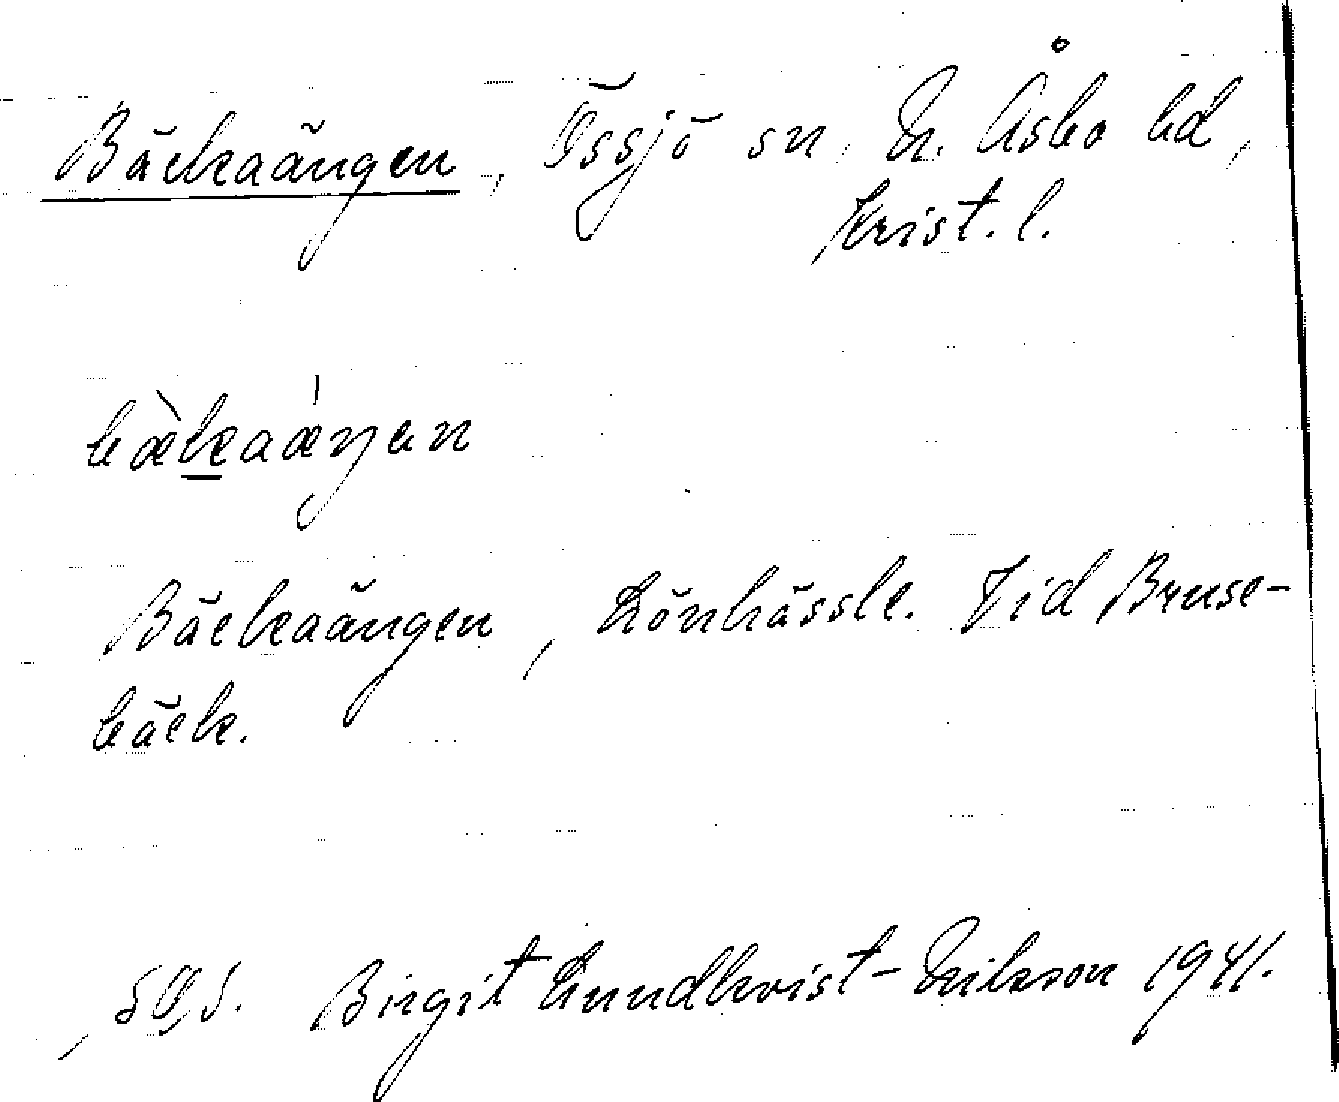 Bäckaängen, Össjö sn, N. Åsbo hd,
Krist. l.
bæ̀kaæ̀ŋen
Bäckaängen, Lönhässle. Vid Bruse-
bäck.
Birgit Lundkvist-Erikson 1941.